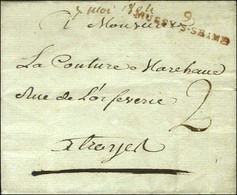 9
MUSSY-S-SEINE
A Monsieur
La Couture Marchand
Rue de L'orfeverie 2
A troyes